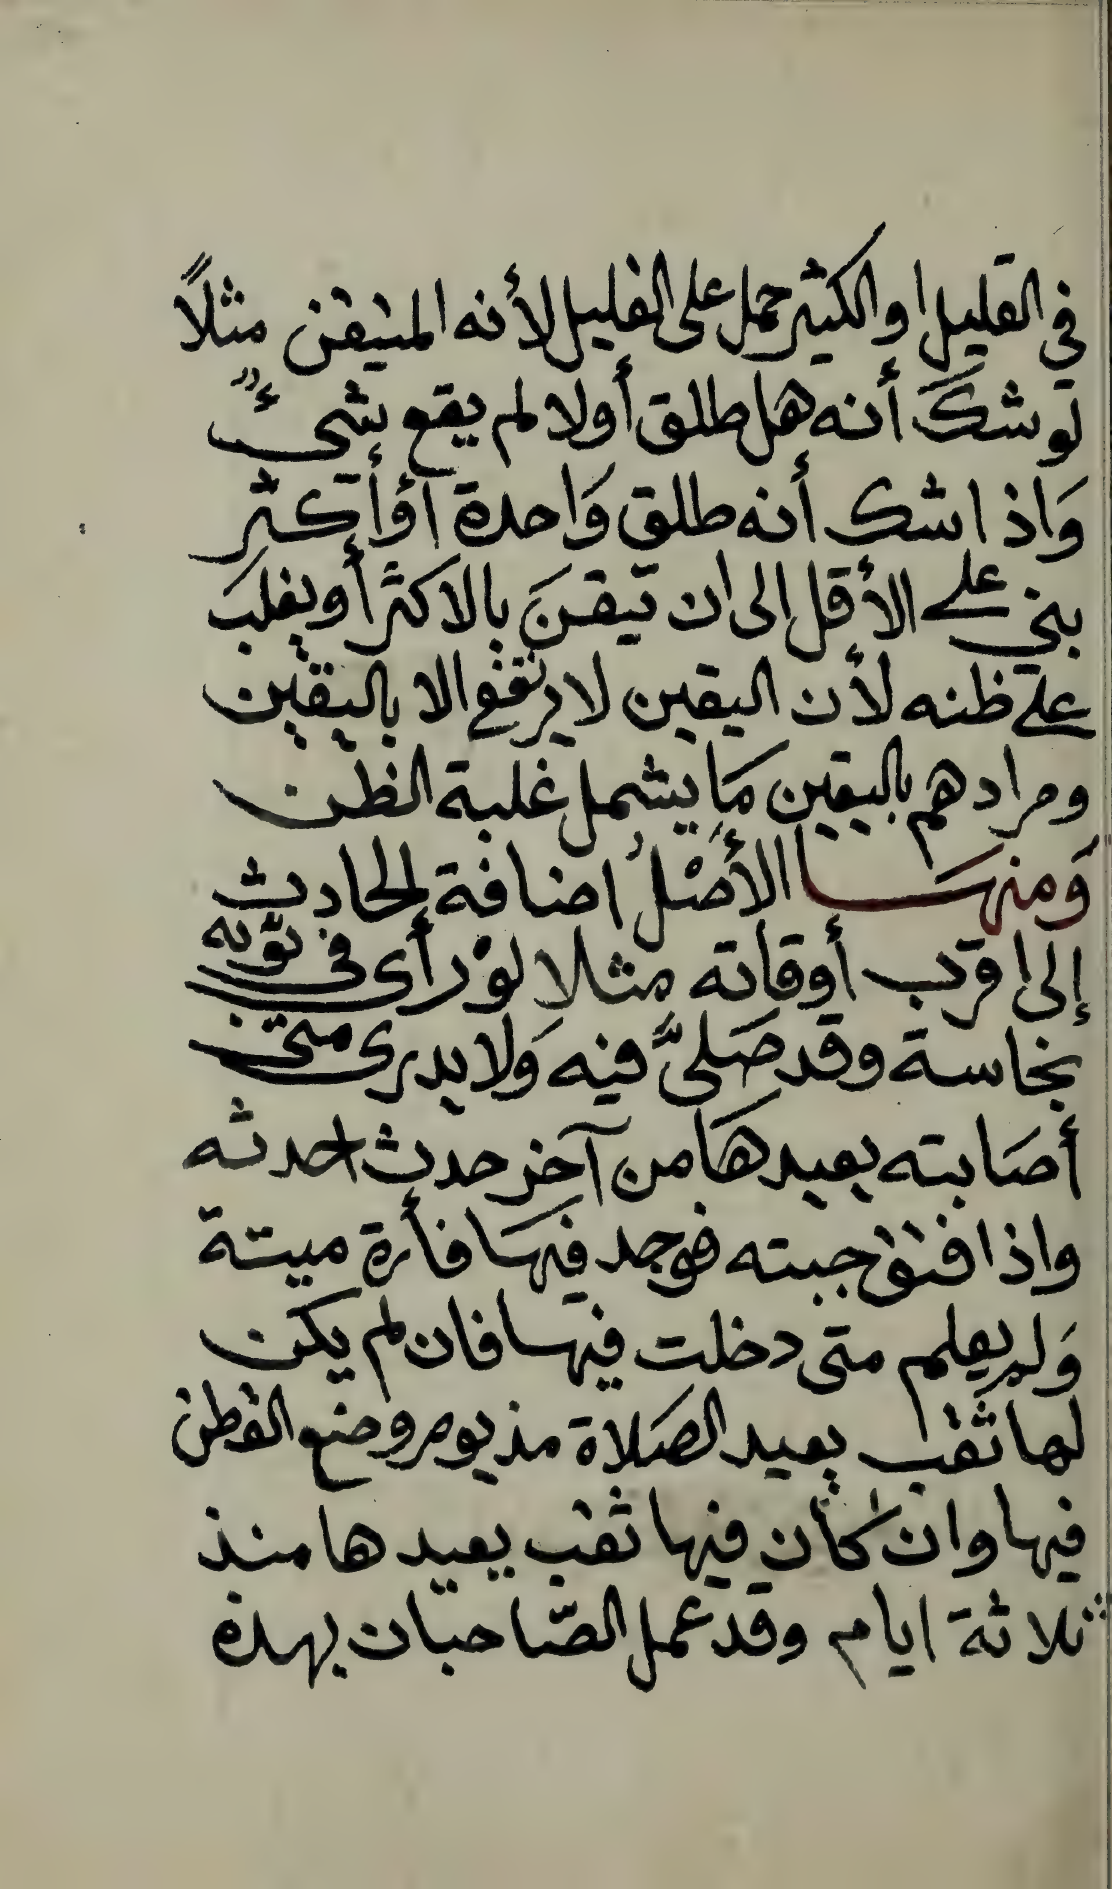 في القليل او الكثير حمل على القليل لأنه المتيقن مثلاً
لو شك أنه هل طلق أو لا لم يقع شيءٌ
وَاذا شك أنه طلق وَاحدة أو أكثر
بني على الأقل إلى ان تيقنَ بالاكثر أو يغلبَ
على ظنه لأن اليقين لا يرتفع الا باليقين
ومرادهم باليقين مَا يشمل غلبة الظن
وَمنهَا الأصْلُ اضافة الحادث
إلى اقرب أوقاته مثلا لوْ رأى في ثوبه
نجاسة وقد صَلىَّ فيه وَلا يدرى متى
أصَابته يعيدهَا من آخر حدث احدثه
واذا فتق جبته فوجد فيهَا فأرة ميتة
وَلم يعلم متى دخلت فيها فان لم يكن
لها ثقب يعيد الصَلاة مذ يوم وضع القطن
فيها وان كان فيها ثقب يعيدها منذ
ثلاثة ايام وقد عمل الصّاحبان بهذه